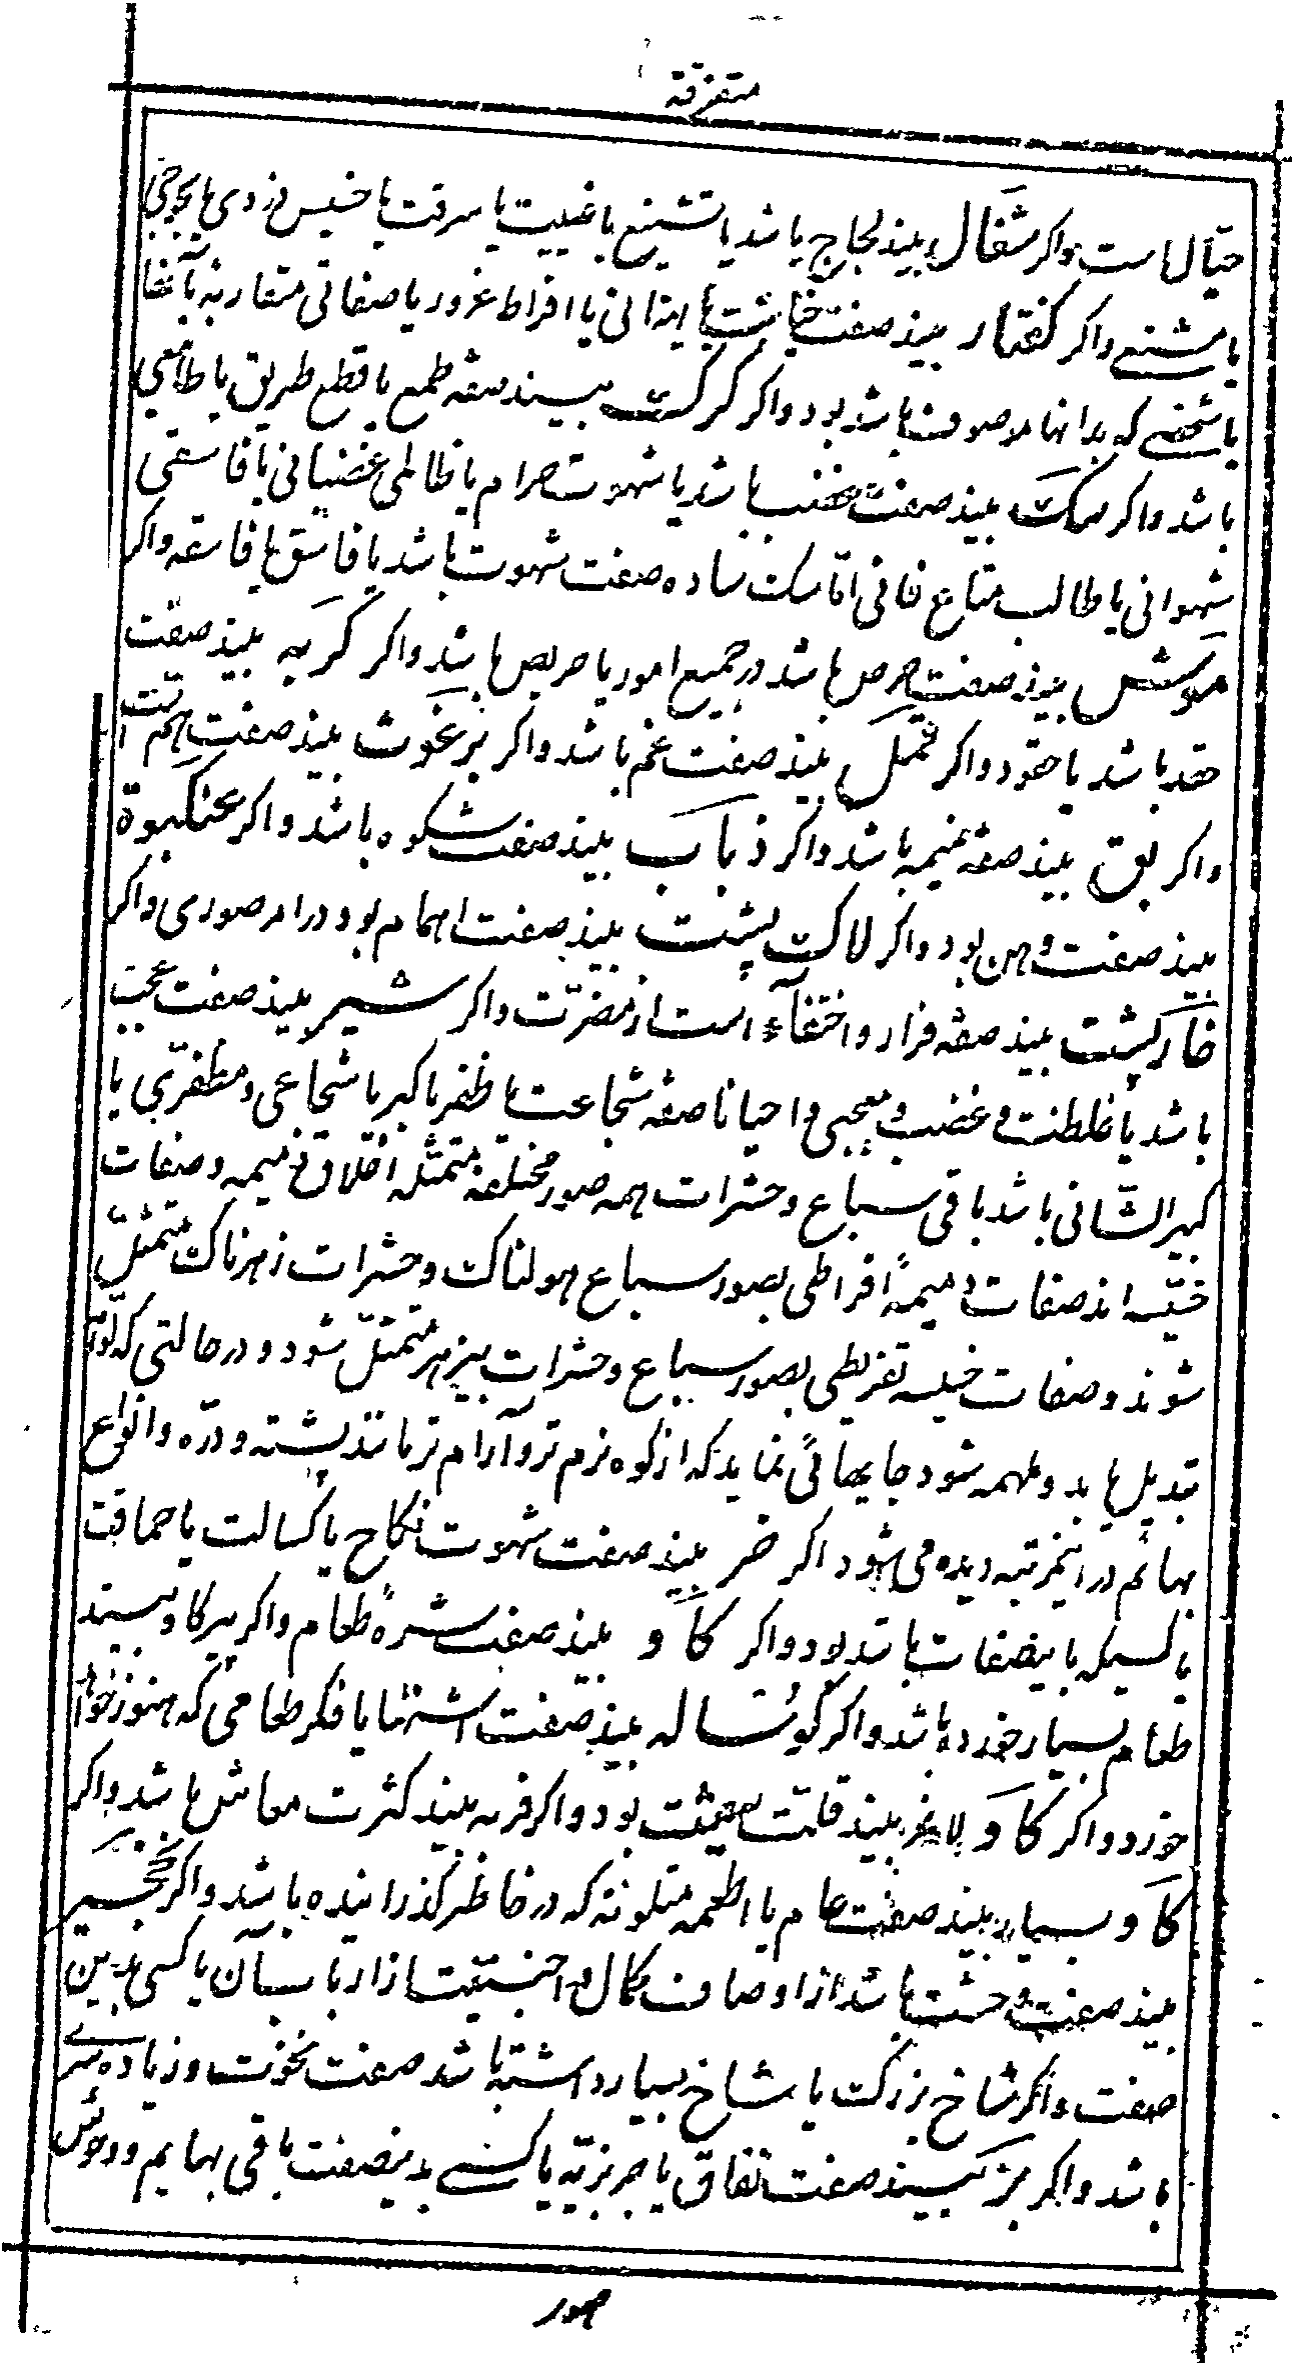 متفرقة
حیّال است واکر شغال بیند لجاج باشد یا تشنیع یا غیبت یا سرقت یا خسیس دزدی یا لجوجی
یا مشنعی واکر کفتار بیند صفت خباثت یا ایذائی یا افراط غرور یا صفاتی متقاربه یا
یا شخصی که بدانها موصوف باشد بود واکر کرک بیند صفه طمع یا قطع طریق یا طامعی
باشد واکر سک بیند صفت غضب باشد یا شهوت حرام یا ظالمی غضبانی یا فاسقی
شهوانی یا طالب متاع فانی اما سک ساده صفت شهوت باشد یا فاسق یا فاسقه واکر
موش بیند صفت حرص باشد در جمیع امور یا حریص باشد واکر کربه بیند صفت
حقد باشد یا حقود واکر قمل بیند صفت غم باشد واکر برغوث بیند صفت همّ است
واکر بق بیند صفه نمیمه باشد واکر ذباب بیند صفت شکوه باشد واکر عنکبوة
بیند صفت وهن بود واکر لاک پشت بیند صفت اهمام بود در امر صوری واکر
خارپشت بیند صفه فرار واختفاء است از مضرّت واکر شیر بیند صفت عجب
باشد یا غلظت و غضب و معجبی و احیانا صفه شجاعت یا ظفر یا کبر یا شجاعی و مظفرّی یا
کبیر الشانی باشد باقی سباع و حشرات همه صور مختلفه متمثله اخلاق ذمیمه و صفات
خسّیه اند صفات ذمیمهٔ افراطی بصور سباع هولناک و حشرات زهرناک متمثل
شوند و صفات خسیسه تفریطی بصور سباع و حشرات بیزهر متمثل شود و در حالتی که لوامه
تبدیل یابد و ملهمه شود جایهائی نماید که از کوه نرم تر و آرام تر مانند پشته و درّه و انواع
بهائم در اینمرتبه دیده می شود اکر خر بیند صفت شهوت نکاح یا کسالت یا حماقت
یا کسیکه باینصفات باشد بود واکر کاو بیند صفت شرهٔ طعام واکر پیر کاو بیند
طعام بسیار خورده باشد واکر کوساله بیند صفت اشتها یا فکر طعامی که هنوز نخواهد
خورد واکر کاو لاغر بیند قلت معیشت بود واکر فربه بیند کثرت معاش باشد واکر
کاو بسیار بیند صفت عام یا اطعمه متلونه که در خاطر کذرانیده باشد واکر نخجیر
بیند صفت وحشت باشد از اوصاف کمال و اجنبیت از ارباب آن یا کسی بدین
صفت واکر شاخ بزرک یا شاخ بسیار داشته باشد صفت نخوت و زیاده سری
باشد واکر بز بیند صفت نفاق یا جربزیّه یا کسی بدینصفت باقی بهایم و وحوش
صور